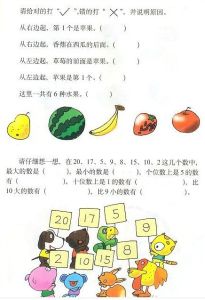 请给对的打“✓”,错的打“✗”。并说明原因。
从右边起，第1个是苹果。(　　)
从右边起，香蕉在西瓜的后面。(　　)
从左边起，草莓的前面是苹果。(　　)
从左边起，苹果是第1个。(　　)
这里一共有6种水果。(　　)
请仔细想一想，在20、17、5、9、8、15、10、2这几个数中，
最大的数是(　　)，最小的数是(　　)，个位数上是5的数
有(　　)，十位数上是1的数有(　　)，比
10大的数有(　　)，比9小的数有(　　)。
20 17 5 9
2 10 15 8